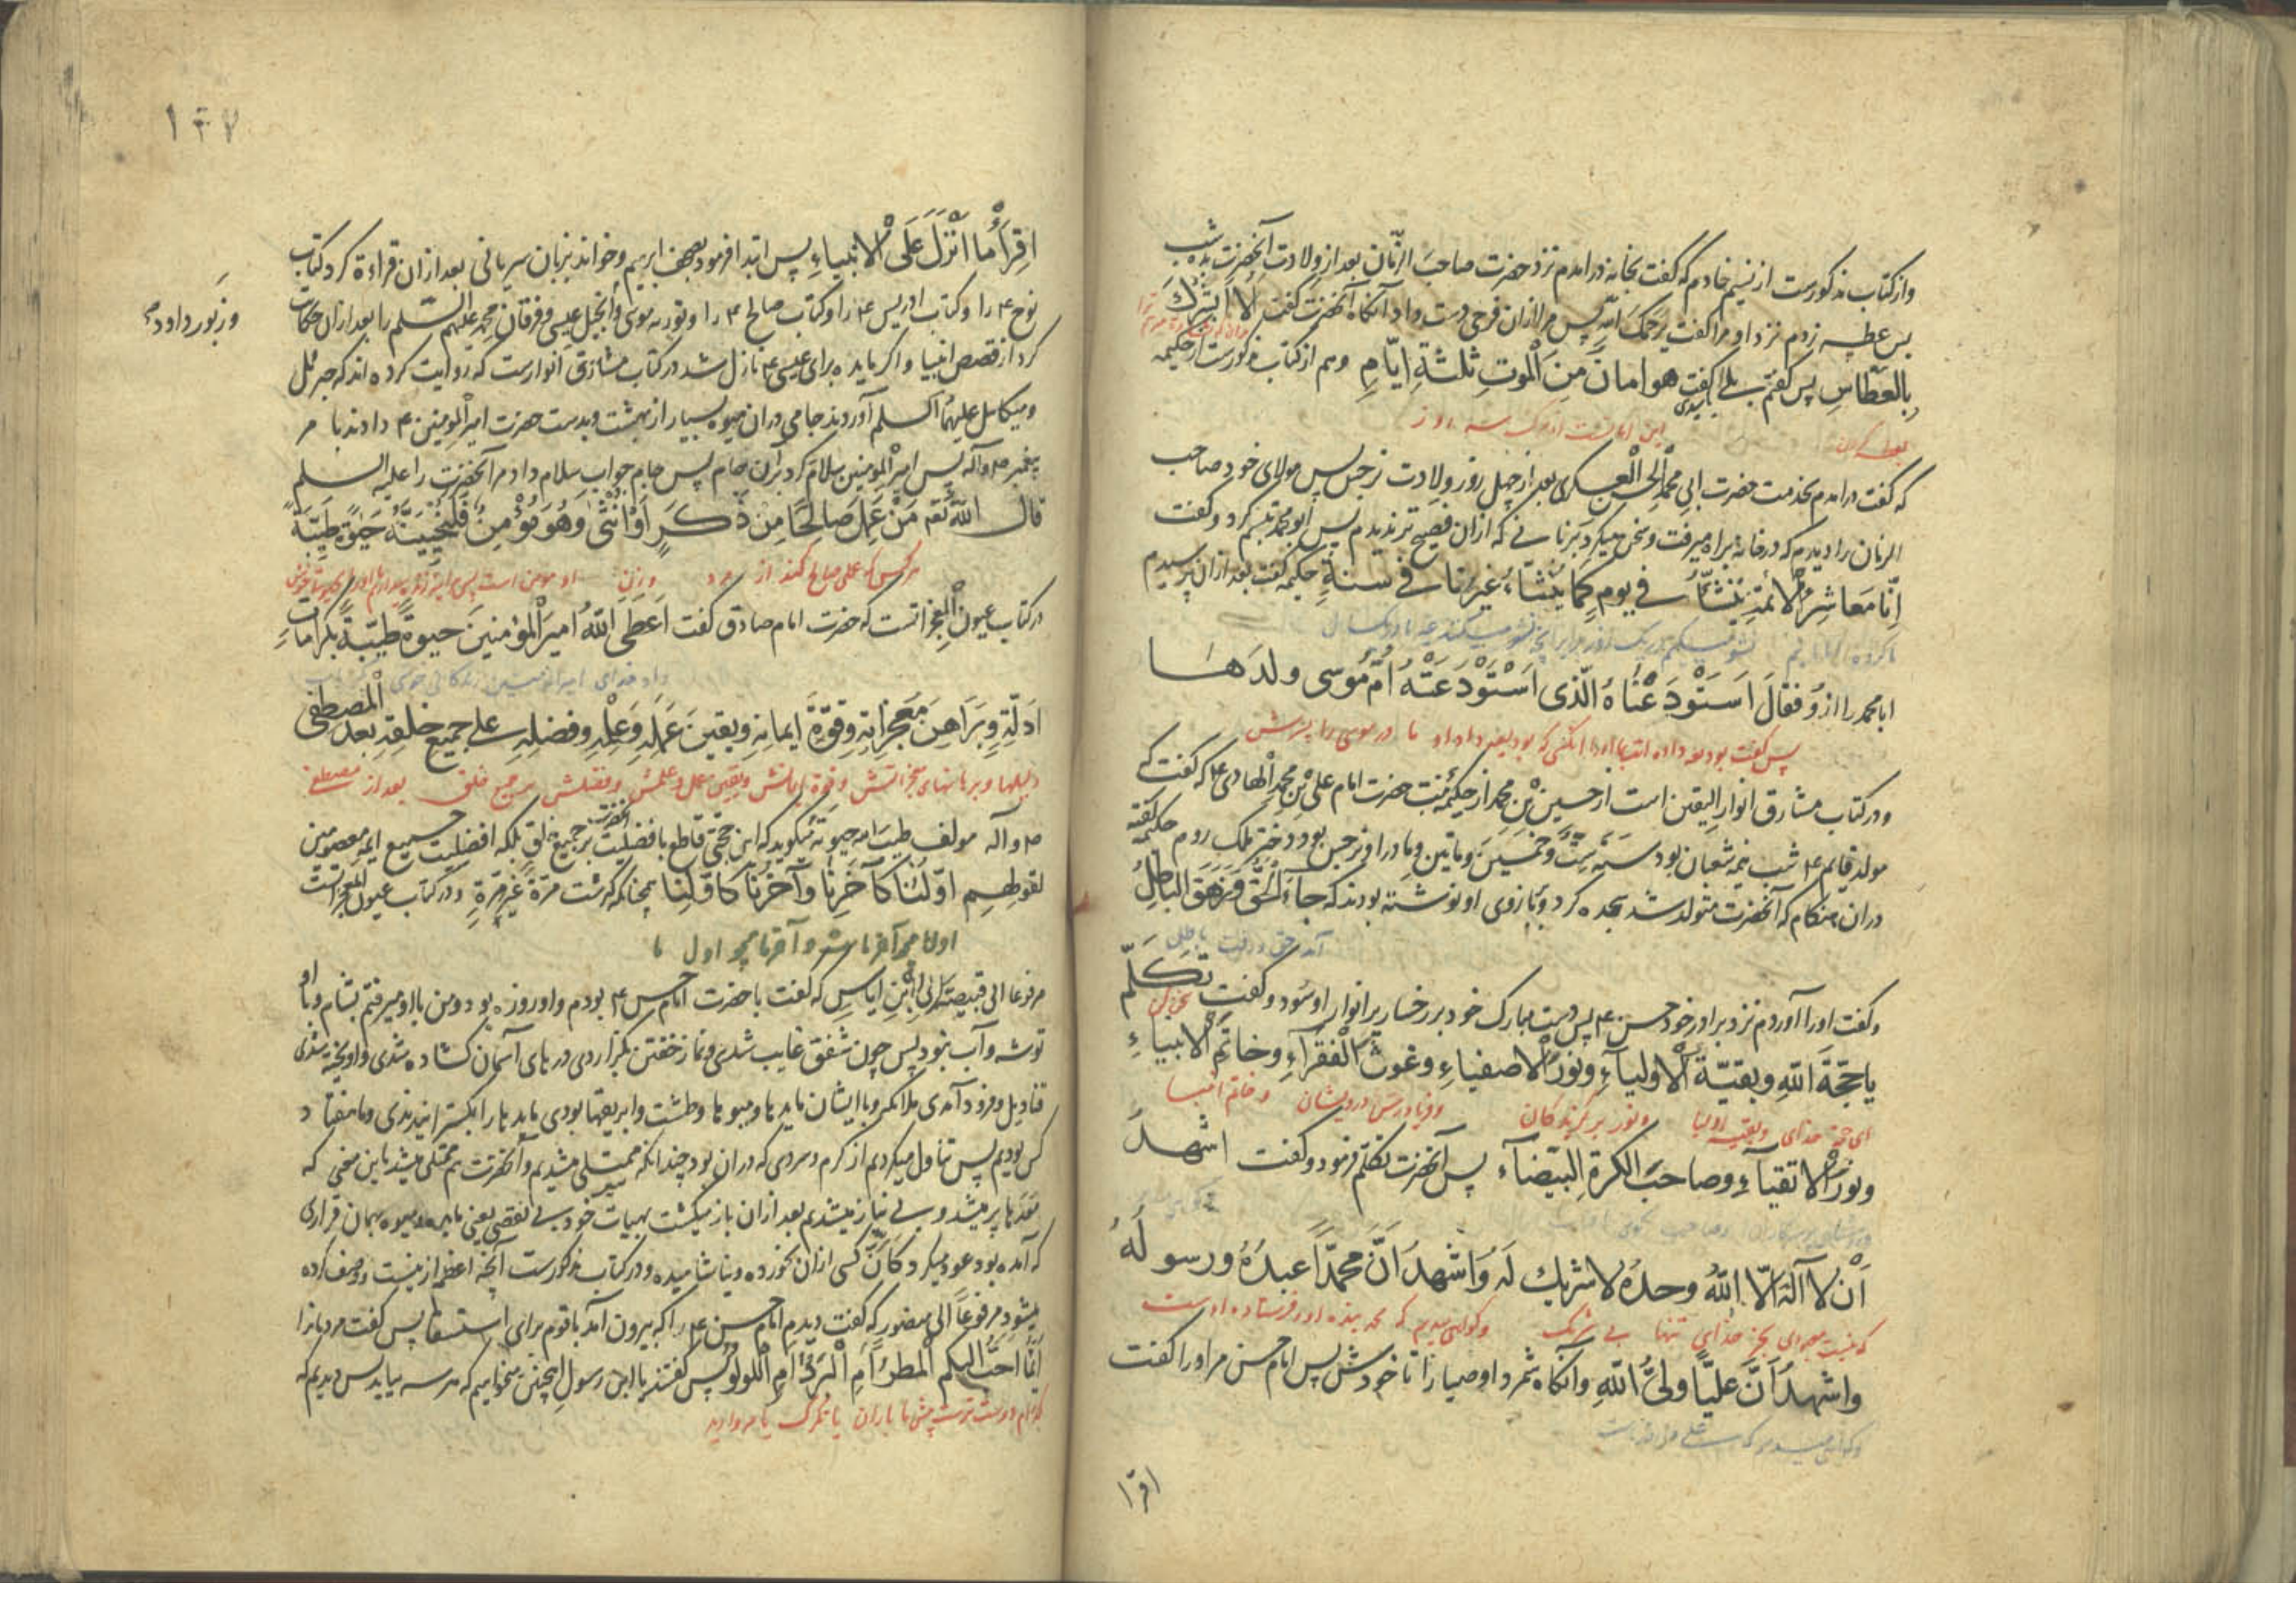 و از کتاب مذکورست از نسیم خادم که گفت بخانه در امدم نزد حضرت صاحب الزّمان بعد از ولادت آنحضرت بده شب
پس عطسه زدم نزد او مرا گفت یرحمک الله پس مرا از ان فرحی دست داد آنگاه آنحضرت گفت اَلا اُبشّرکَ
بالعطّاسِ پس گفتم بلی سیدی گفت هو امانٌ مِنَ الْموتِ ثلثةِ ایّامٍ و هم از کتاب مذکورست از حکیمه
این امانست از مرگ سه روز
که گفت در امدم بخدمت حضرت ابی محمد الحسن العسکری بعد از چهل روز ولادت نرجس پس مولای خود صاحب
الزمان را دیدم که در خانه براه میرفت و سخن میکرد بزبانی که از ان فصیح تر ندیدم پس ابو محمد تبسم کرد و گفت
اِنّا مَعاشِرُ الْائمّةِ نَنْشَأُ فی یومٍ کما یَنْشَاءُ غیرنا فی سنةٍ حکیمه گفت بعد ازان پرسیدم
ابا محمد را از وُ فقالَ اَستَوْدَعْناهُ الّذی اَسْتَوْدَعَتْهُ اُمّ مُوسی ولدَها
پس گفت بودیعه داده انتیما او را انکسی که بودیعه داد او مادر موسی را پسرش
و در کتاب مشارق انوار الیقین است از حسین بْنِ محمد از حکیمه بنت حضرت امام علی بْنِ محمد الْهادی ع که گفت که
مولد قایم ع شب نیمه شعبان بود سنه ستّ و خمسین و ماتین و مادر او نرجس بود دختر ملک روم حکیمه گفته
دران هنگام که آنحضرت متولد شد سجده کرد و ببازوی او نوشته بودند که جاءَ الْحقّ وَ زَهَقَ الباطِلُ
آمد حق و رفت باطل
و گفت او را آوردم نزد برادر خود حسن ع پس دست مبارک خود بر رخسار پر انوار او سُود و گفت تَکَلّمْ
یا حجّةَ اللّهِ و بقیّة الْاولیآءِ و نورَ الْاصفیاءِ و غوثَ الْفقرآءِ و خاتِم الْانبیاءِ
ای حجة خدای و بقیه اولیا و نور برگزیدگان و فریادرس درویشان و خاتم انبیا
و نورَ الْاتقیآءِ و صاحبَ الکرةِ الْبیضآءِ پس آنحضرت تکلم فرمود و گفت اشهدُ
اَنْ لا آلهَ الّا اللّهُ وحدهُ لا شریک لهُ وَ اَشهدُ اَنّ محمّداً عبدُهُ و رسولُهُ
که نیست معبودی بجز خدای تنها بی شریک و گواهی میدهم که محمد بنده او و فرستاده اوست
و اشهدُ اَنّ علیّاً ولیّ اللّهِ و آنگاه شمرد اوصیا را تا خودش پس امام حسن مر او را گفت
و گواهی میدهم که علی ولی خداست
اقرا
۱۴۷
اِقرَأْ ما اَنْزَلَ عَلَی الْانبیاءِ پس ابتدا فرمود بصحف ابرهیم و خواند بزبان سریانی بعد از ان قراءة کرد کتاب
نوح ع را و کتاب ادریس ع را و کتاب صالح ع را و توریه موسی و انجیل عیسی و فرقان محمد علیهم السّلم را بعد ازان حکایات
و زبور داود
کرد از قصص انبیا و اگر مایده برای عیسی ع نازل شد در کتاب مشارق انوارست که روایت کرده اند که جبرئیل
و میکائیل علیهما السلم آوردند جامی دران میوه بسیار از بهشت و بدست حضرت امیر المومنین ع دادند با مر
پیغمبر ص و آله پس امیر المومنین سلام کرد بران جام پس جام جواب سلام داد مر آنحضرت را علیه السلم
قال اللّه تعم مَنْ عَمِلَ صَالِحًا مِن ذَکَرٍ اَوْ اُنْثٰی وَ هُوَ مُؤْمِنٌ فَلَنُحْیِیَنَّهُ حَیٰوةً طَیِّبَةً
هر کس که عمل صالح کند از مرد و زن او مومن است
در کتاب عیون الْمعجزاتست که حضرت امام صادق گفت اَعطَی اللّهُ امیرَ الْمؤمنینَ حیوةً طیّبةً بکراماتِ
داد خدای امیر المومنین زندکانی خوش
اَدلّتِهِ و بَرَاهینَ مَعجزاتِهِ و قوّةَ ایمانِهِ و یقینَ عَمَلِهِ وَ عِلْمِهِ و فضلِهِ علی جمیعِ خلقِهِ بعدَ الْمصطفی
دلیلها و برهانهای معجزاتش و قوة ایمانش و یقین عمل و علمش و فضلش بر جمیع خلق بعد از مصطفی
ص و آله مولف طیب الله حیوته میگوید که این حجتی قاطع با فضلیت آنحضرت بر جمیع خلق بلکه افضلیت جمیع ایمه معصومین
لقولهم اوّلُنا کآخَرِنا وَ آخرُنا کاوّلِنا چنانکه گذشت مرّةً غیر مرّةٍ و در کتاب عیون المعجزاتست
اول ما همچو آخر ماست و آخر ما همچو اول ما
مرفوعا الی قبیصة بْنِ ایاس که گفت با حضرت امام حسن ع بودم و او روزه بود و من با او میرفتم بشام و با او
توشه و آب نبود پس چون شفق غایب شدی و نماز خفتن بگزاردی درهای آسمان کشاده شدی و اویخته شدی
قنادیل و فرود آمدی ملائکه و با ایشان مایدها و میوها و طشت و ابریقها بودی مایدها را بگسترانیدندی و ما هفتاد
کس بودیم پس تناول میکردیم از گرم و سردی که دران بود چندانکه ممتلی میشدیم و آنحضرت هم ممتلی میشد باین معنی که
معدها پر میشد و بی نیاز میشدیم بعد ازان باز میکشت بهیات خود بی نقصی یعنی مایده و میوه بهمان قراری
که آمده بود عود میکرد کَاَنَّ کسی ازان نخورده و نیاشامیده و در کتاب مذکورست آنچه اعظم ازینست
میشود مرفوعاً الی منصور که گفت دیدم امام حسن ع را که بیرون آمد با قوم برای استسقا پس گفت مردمانرا
اَیّما احبّ الیکم الْمطرُ اَمِ الْبَرَدُ اَمِ اللّولوُ پس گفتند یا ابن رسول همچنین میخواهیم که هر سه بیاید پس دیدیم که
کدام دوست ترست پیش شما باران یا تگرگ یا مروارید